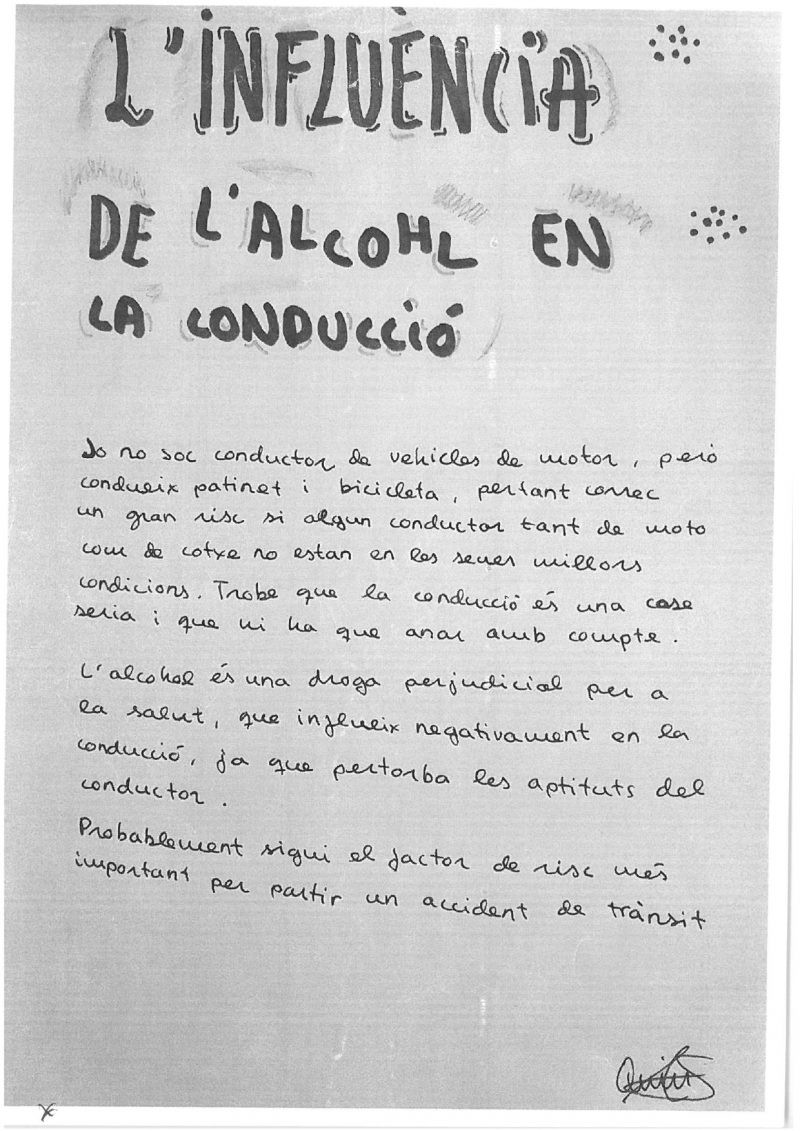 L'INFLUÈNCIA
DE L'ALCOHL EN
LA CONDUCCIÓ
Jo no soc conductor de vehicles de motor, però
condueix patinet i bicicleta, pertant correc
un gran risc si algun conductor tant de moto
com de cotxe no estan en les seues millors
condicions. Trobe que la conducció és una cose
seria i que ni ha que anar amb compte.
L'alcohol és una droga perjudicial per a
la salut, que influeix negativament en la
conducció, ja que pertorba les aptituts del
conductor.
Probablement sigui el factor de risc més
important per partir un accident de trànsit